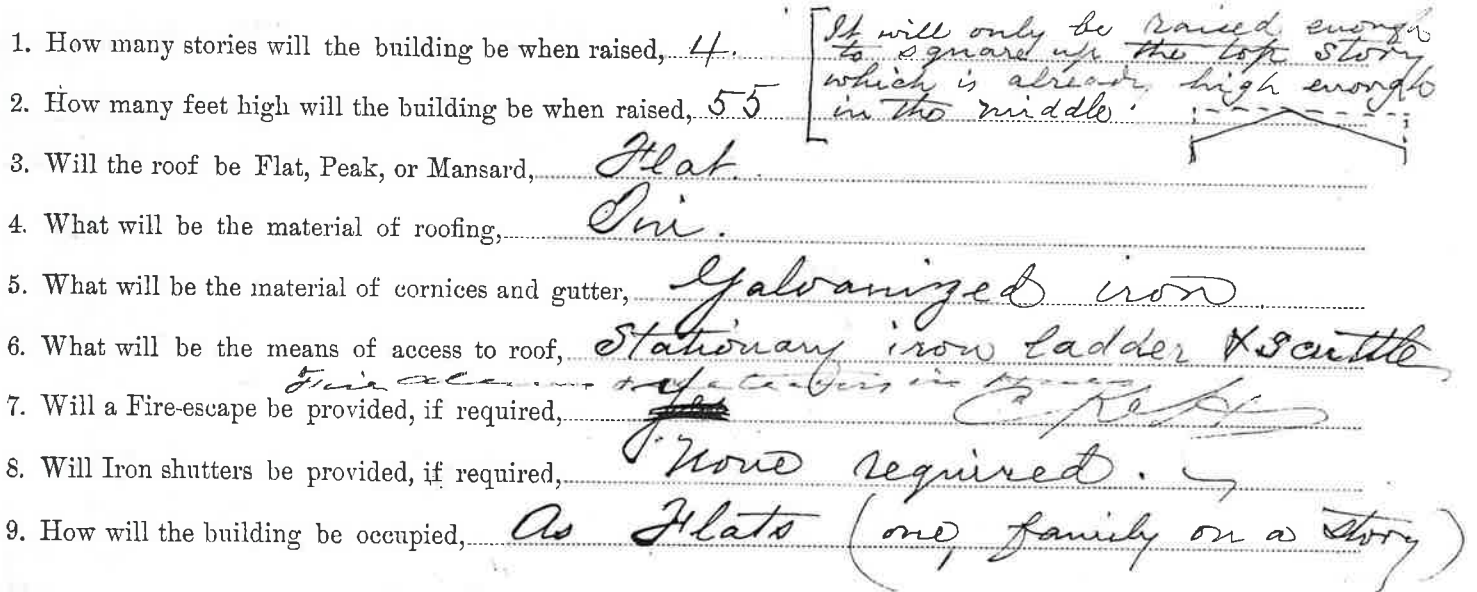 1. How many stories will the building be when raised, 4.
It will only be raised enough
to square up the top story
which is already high enough
in the middle.
2. How many feet high will the building be when raised, 55
3. Will the roof be Flat, Peak, or Mansard, Flat.
4. What will be the material of roofing, Tin.
5. What will be the material of cornices and gutter, Galvanized iron
6. What will be the means of access to roof, Stationary iron ladder & Scuttle
7. Will a Fire-escape be provided, if required,
8. Will Iron shutters be provided, if required, None required.
9. How will the building be occupied, As Flats (one family on a story)